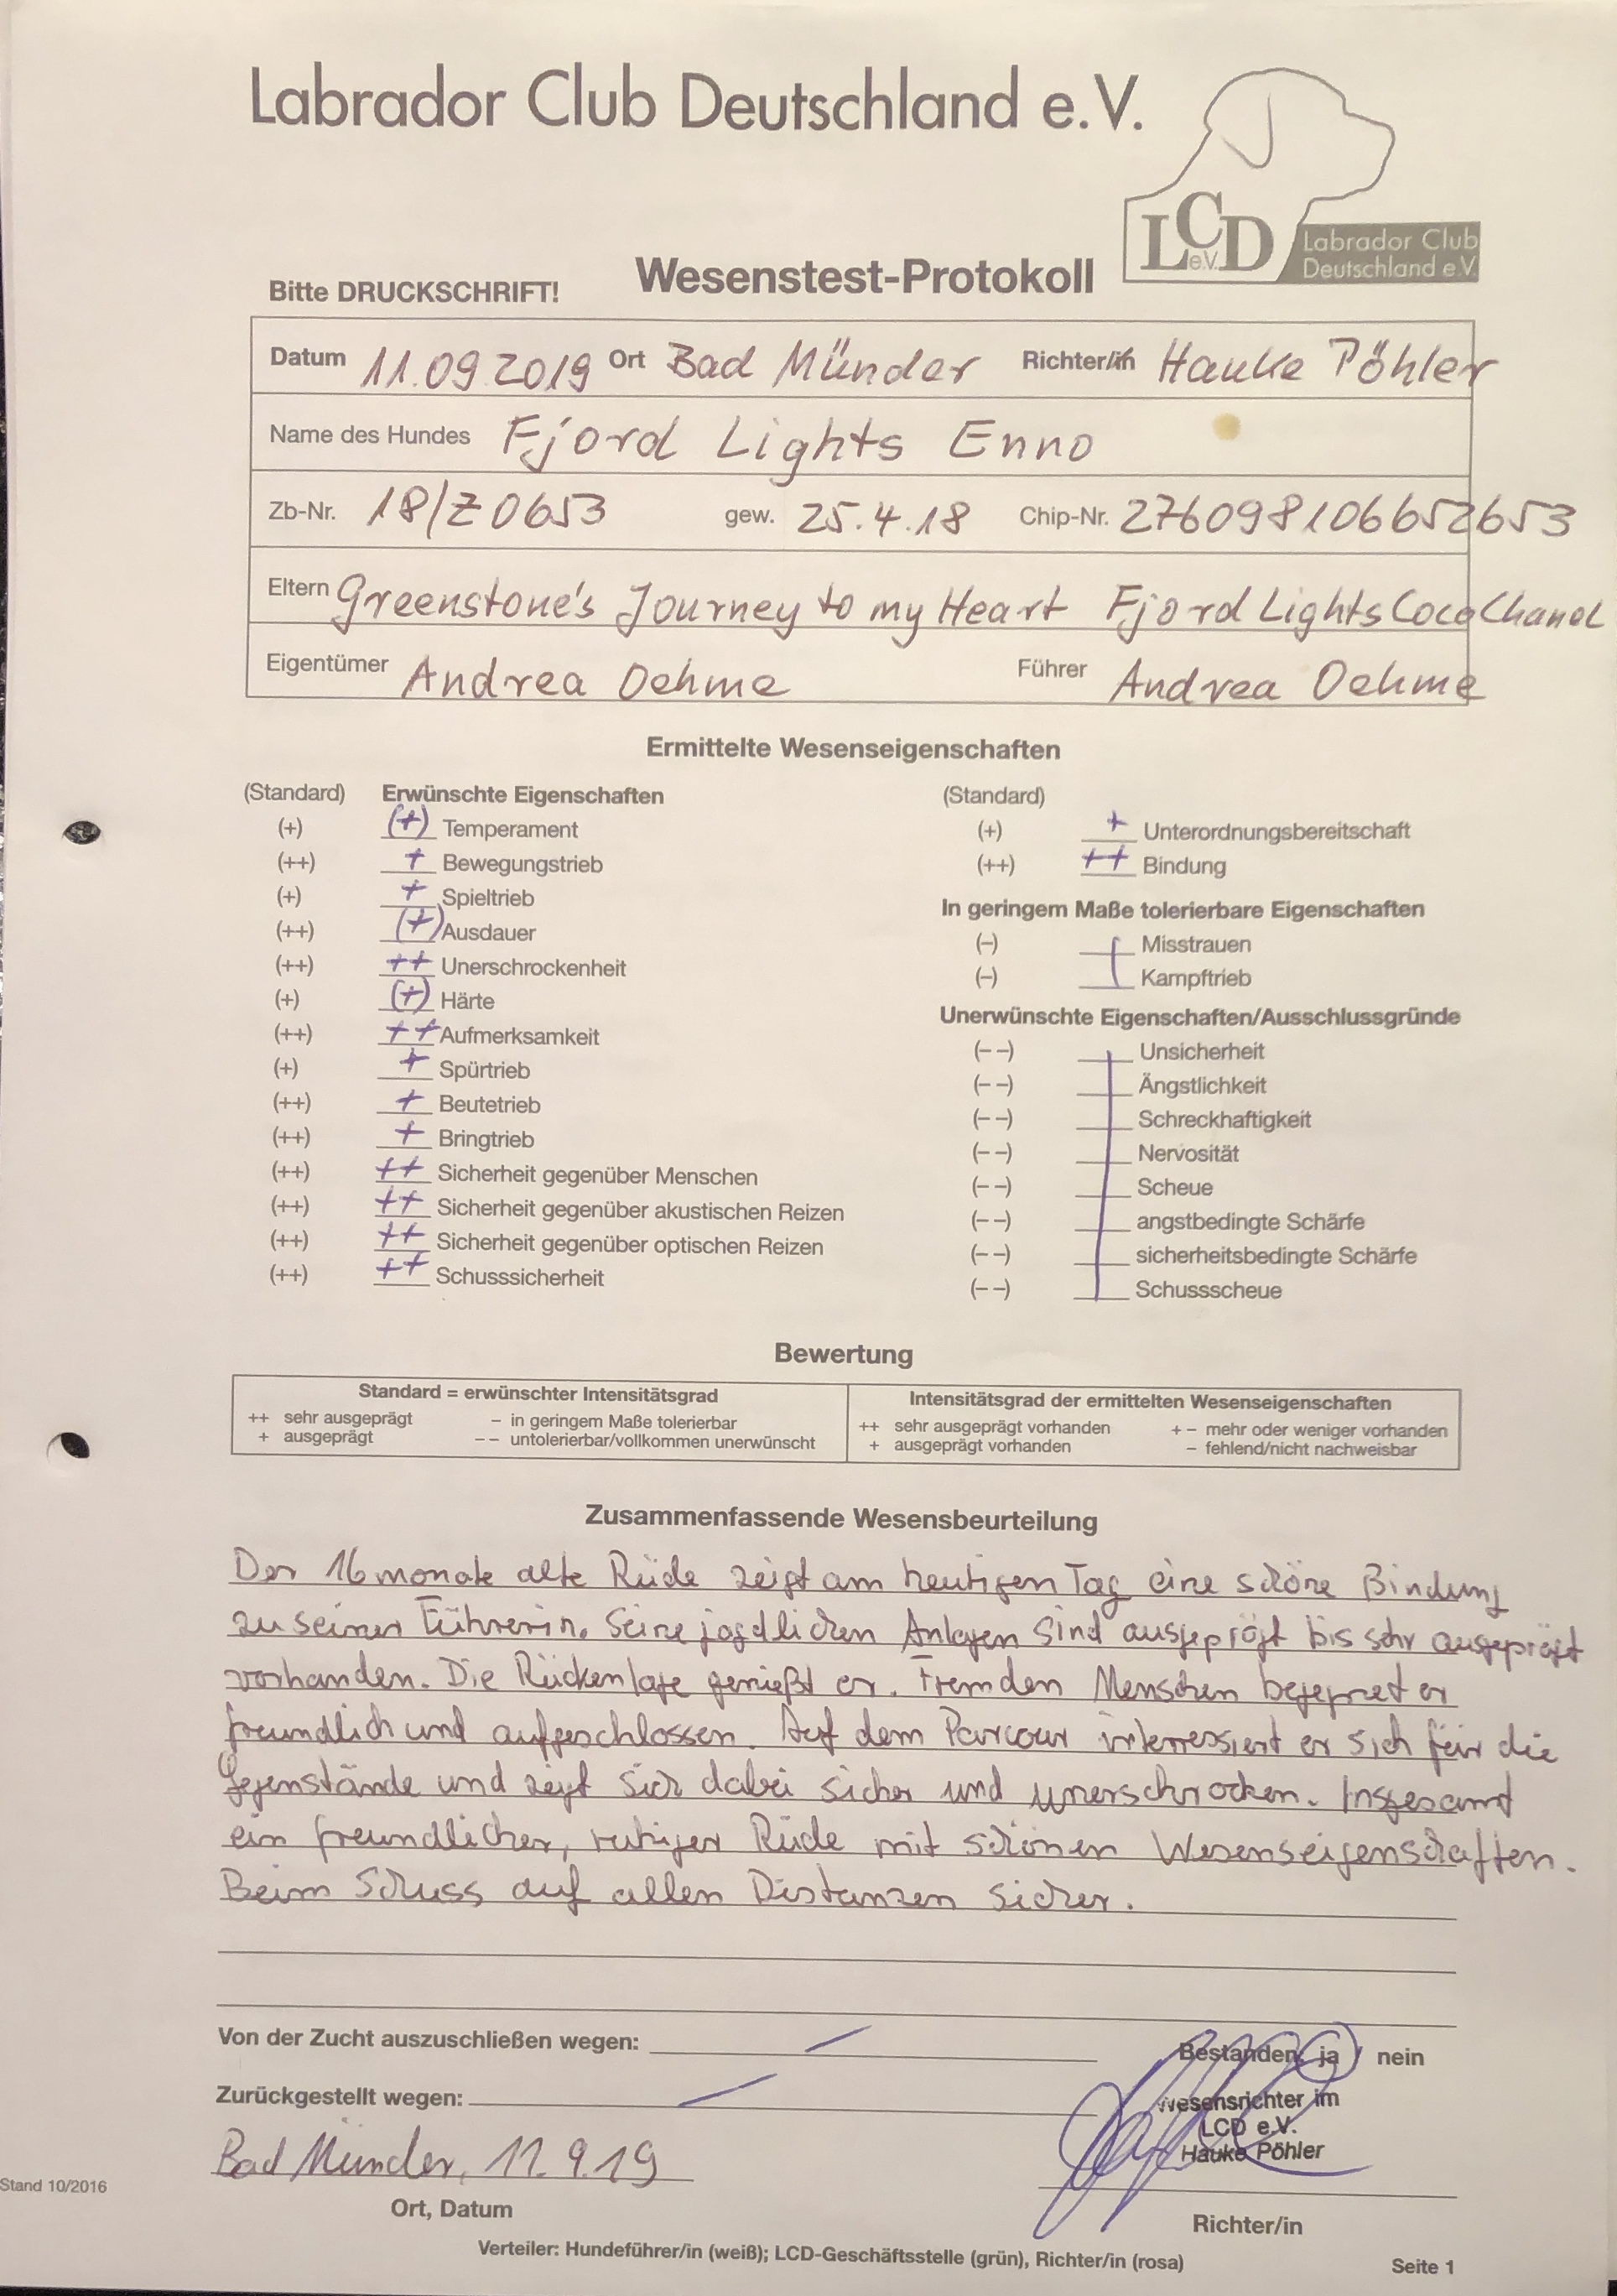 Labrador Club Deutschland e.V.
LCD e.V. Labrador Club
Deutschland e.V.
Bitte DRUCKSCHRIFT! Wesenstest-Protokoll
Datum 11.09.2019 Ort Bad Münder Richter/in Hauke Pöhler
Name des Hundes Fjord Lights Enno
Zb-Nr. 18/Z0653 gew. 25.4.18 Chip-Nr. 276098106652653
Eltern Greenstone's Journey to my Heart Fjord Lights Coco Chanel
Eigentümer Andrea Oehme Führer Andrea Oehme
Ermittelte Wesenseigenschaften
(Standard) Erwünschte Eigenschaften
(+) (+) Temperament
(++) + Bewegungstrieb
(+) + Spieltrieb
(++) (+) Ausdauer
(++) ++ Unerschrockenheit
(+) (+) Härte
(++) ++ Aufmerksamkeit
(+) + Spürtrieb
(++) + Beutetrieb
(++) + Bringtrieb
(++) ++ Sicherheit gegenüber Menschen
(++) ++ Sicherheit gegenüber akustischen Reizen
(++) ++ Sicherheit gegenüber optischen Reizen
(++) ++ Schusssicherheit
(Standard)
(+) + Unterordnungsbereitschaft
(++) ++ Bindung
In geringem Maße tolerierbare Eigenschaften
(–) Misstrauen
(–) Kampftrieb
Unerwünschte Eigenschaften/Ausschlussgründe
(– –) Unsicherheit
(– –) Ängstlichkeit
(– –) Schreckhaftigkeit
(– –) Nervosität
(– –) Scheue
(– –) angstbedingte Schärfe
(– –) sicherheitsbedingte Schärfe
(– –) Schussscheue
Bewertung
Standard = erwünschter Intensitätsgrad
++ sehr ausgeprägt – in geringem Maße tolerierbar
+ ausgeprägt – – untolerierbar/vollkommen unerwünscht
Intensitätsgrad der ermittelten Wesenseigenschaften
++ sehr ausgeprägt vorhanden + – mehr oder weniger vorhanden
+ ausgeprägt vorhanden – fehlend/nicht nachweisbar
Zusammenfassende Wesensbeurteilung
Der 16 monate alte Rüde zeigt am heutigen Tag eine schöne Bindung
zu seiner Führerin. Seine jagdlichen Anlagen sind ausgeprägt bis sehr ausgeprägt
vorhanden. Die Rückenlage genießt er. Fremden Menschen begegnet er
freundlich und aufgeschlossen. Auf dem Parcour interressiert er sich für die
Gegenstände und zeigt sich dabei sicher und unerschrocken. Insgesamt
ein freundlicher, ruhiger Rüde mit schönen Wesenseigenschaften.
Beim Schuss auf allen Distanzen sicher.
Von der Zucht auszuschließen wegen: —
Bestanden: ja / nein
Zurückgestellt wegen: —
Wesensrichter im
LCD e.V.
Hauke Pöhler
Bad Münder, 11.9.19
Stand 10/2016
Ort, Datum
Richter/in
Verteiler: Hundeführer/in (weiß); LCD-Geschäftsstelle (grün), Richter/in (rosa)
Seite 1